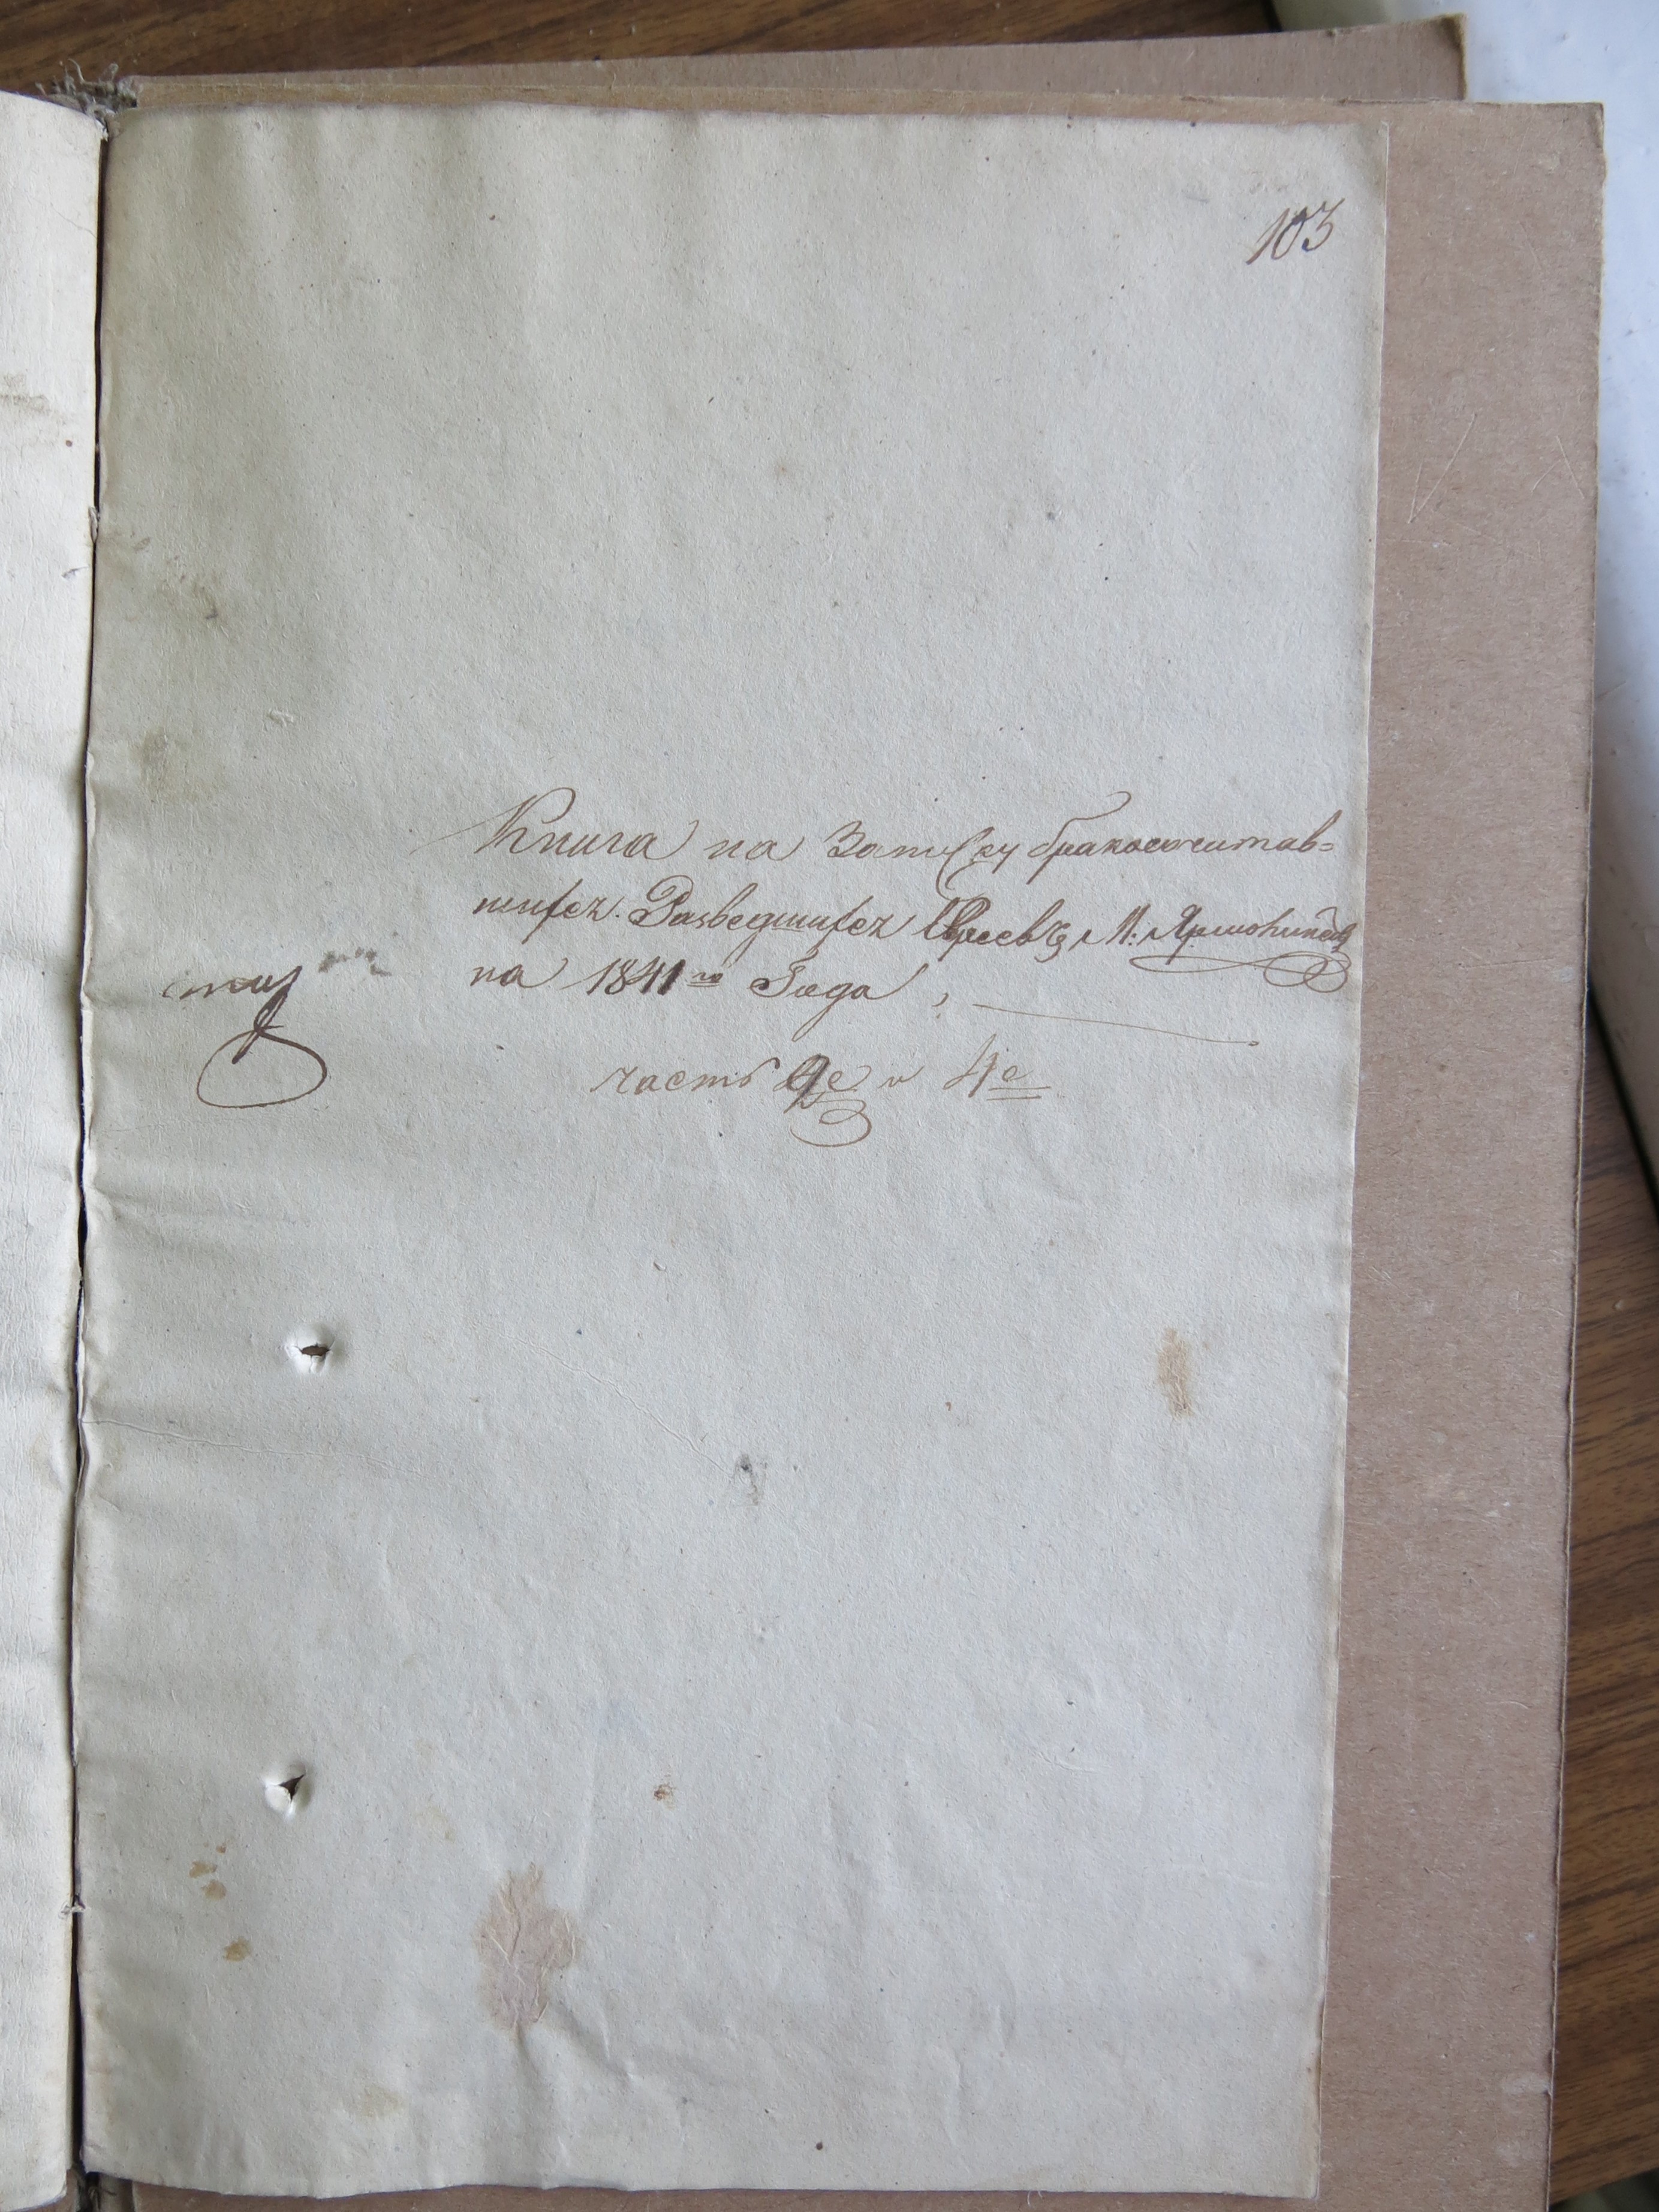 103
Книга на Записку бракосочитав-
шихся. Разведшихся Евреевъ М: Ярмолинецъ
на 1841го Года,
часть 2е и 4е